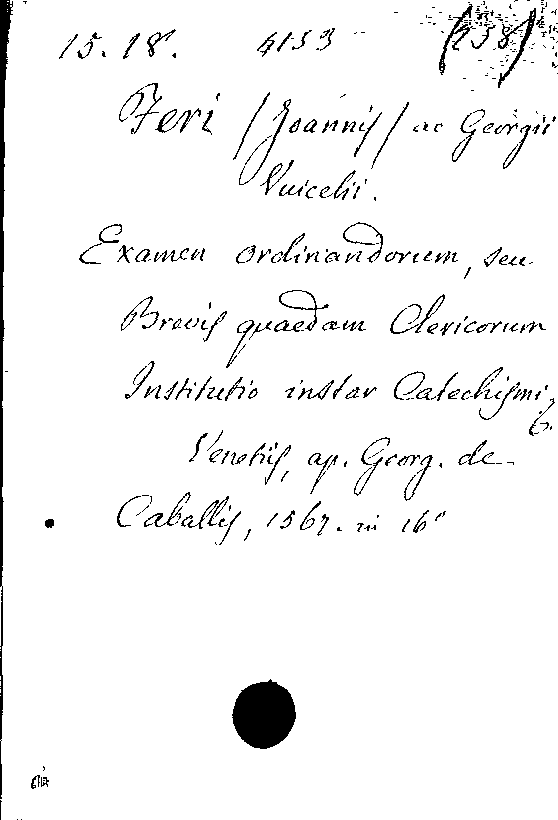 15.18. 4153 (258)
Feri (Joannis) ac Georgii
Vuicelii.
Examen ordinandorum, seu
Brevis quaedam Clericorum
Institutio instar Catechismi,
6.
Venetiis, ap. Georg. de
Caballis, 1567. in 16°